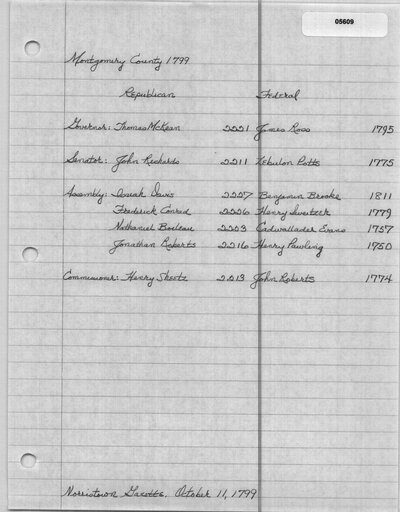 05609
Montgomery County 1799
Republican Federal
Governor: Thomas McKean 2221 James Ross 1795
Senator: John Richards 2211 Zebulon Potts 1775
Assembly: Isaiah Davis 2227 Benjamin Brooke 1811
Frederick Conrad 2206 Henry Sweitzer 1779
Nathaniel Boileau 2203 Cadwallader Evans 1757
Jonathan Roberts 2216 Henry Pawling 1750
Commissioner: Henry Sheetz 2213 John Roberts 1774
Norristown Gazette, October 11, 1799